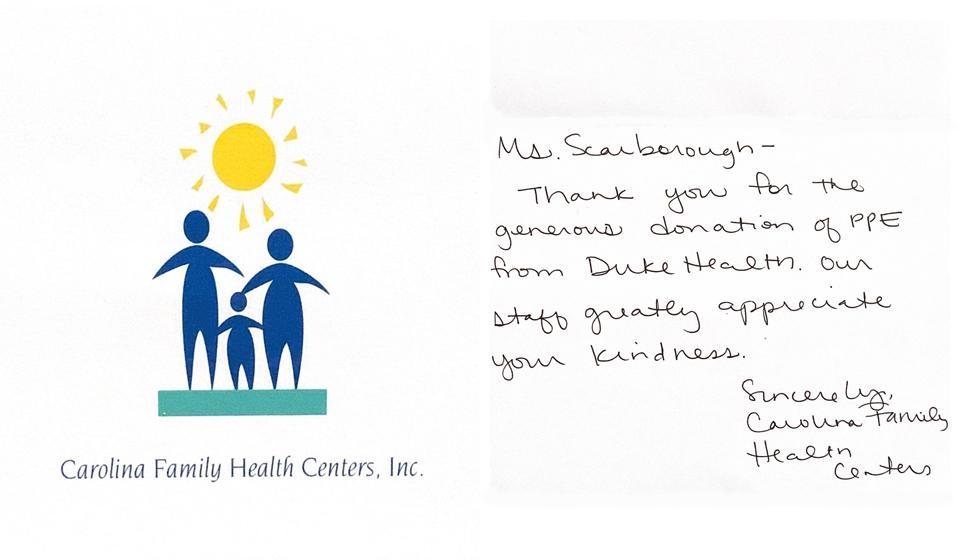 Carolina Family Health Centers, Inc.
Ms. Scarborough-
Thank you for the
generous donation of PPE
from Duke Health. Our
staff greatly appreciate
your kindness.
Sincerely,
Carolina Family
Health
Centers